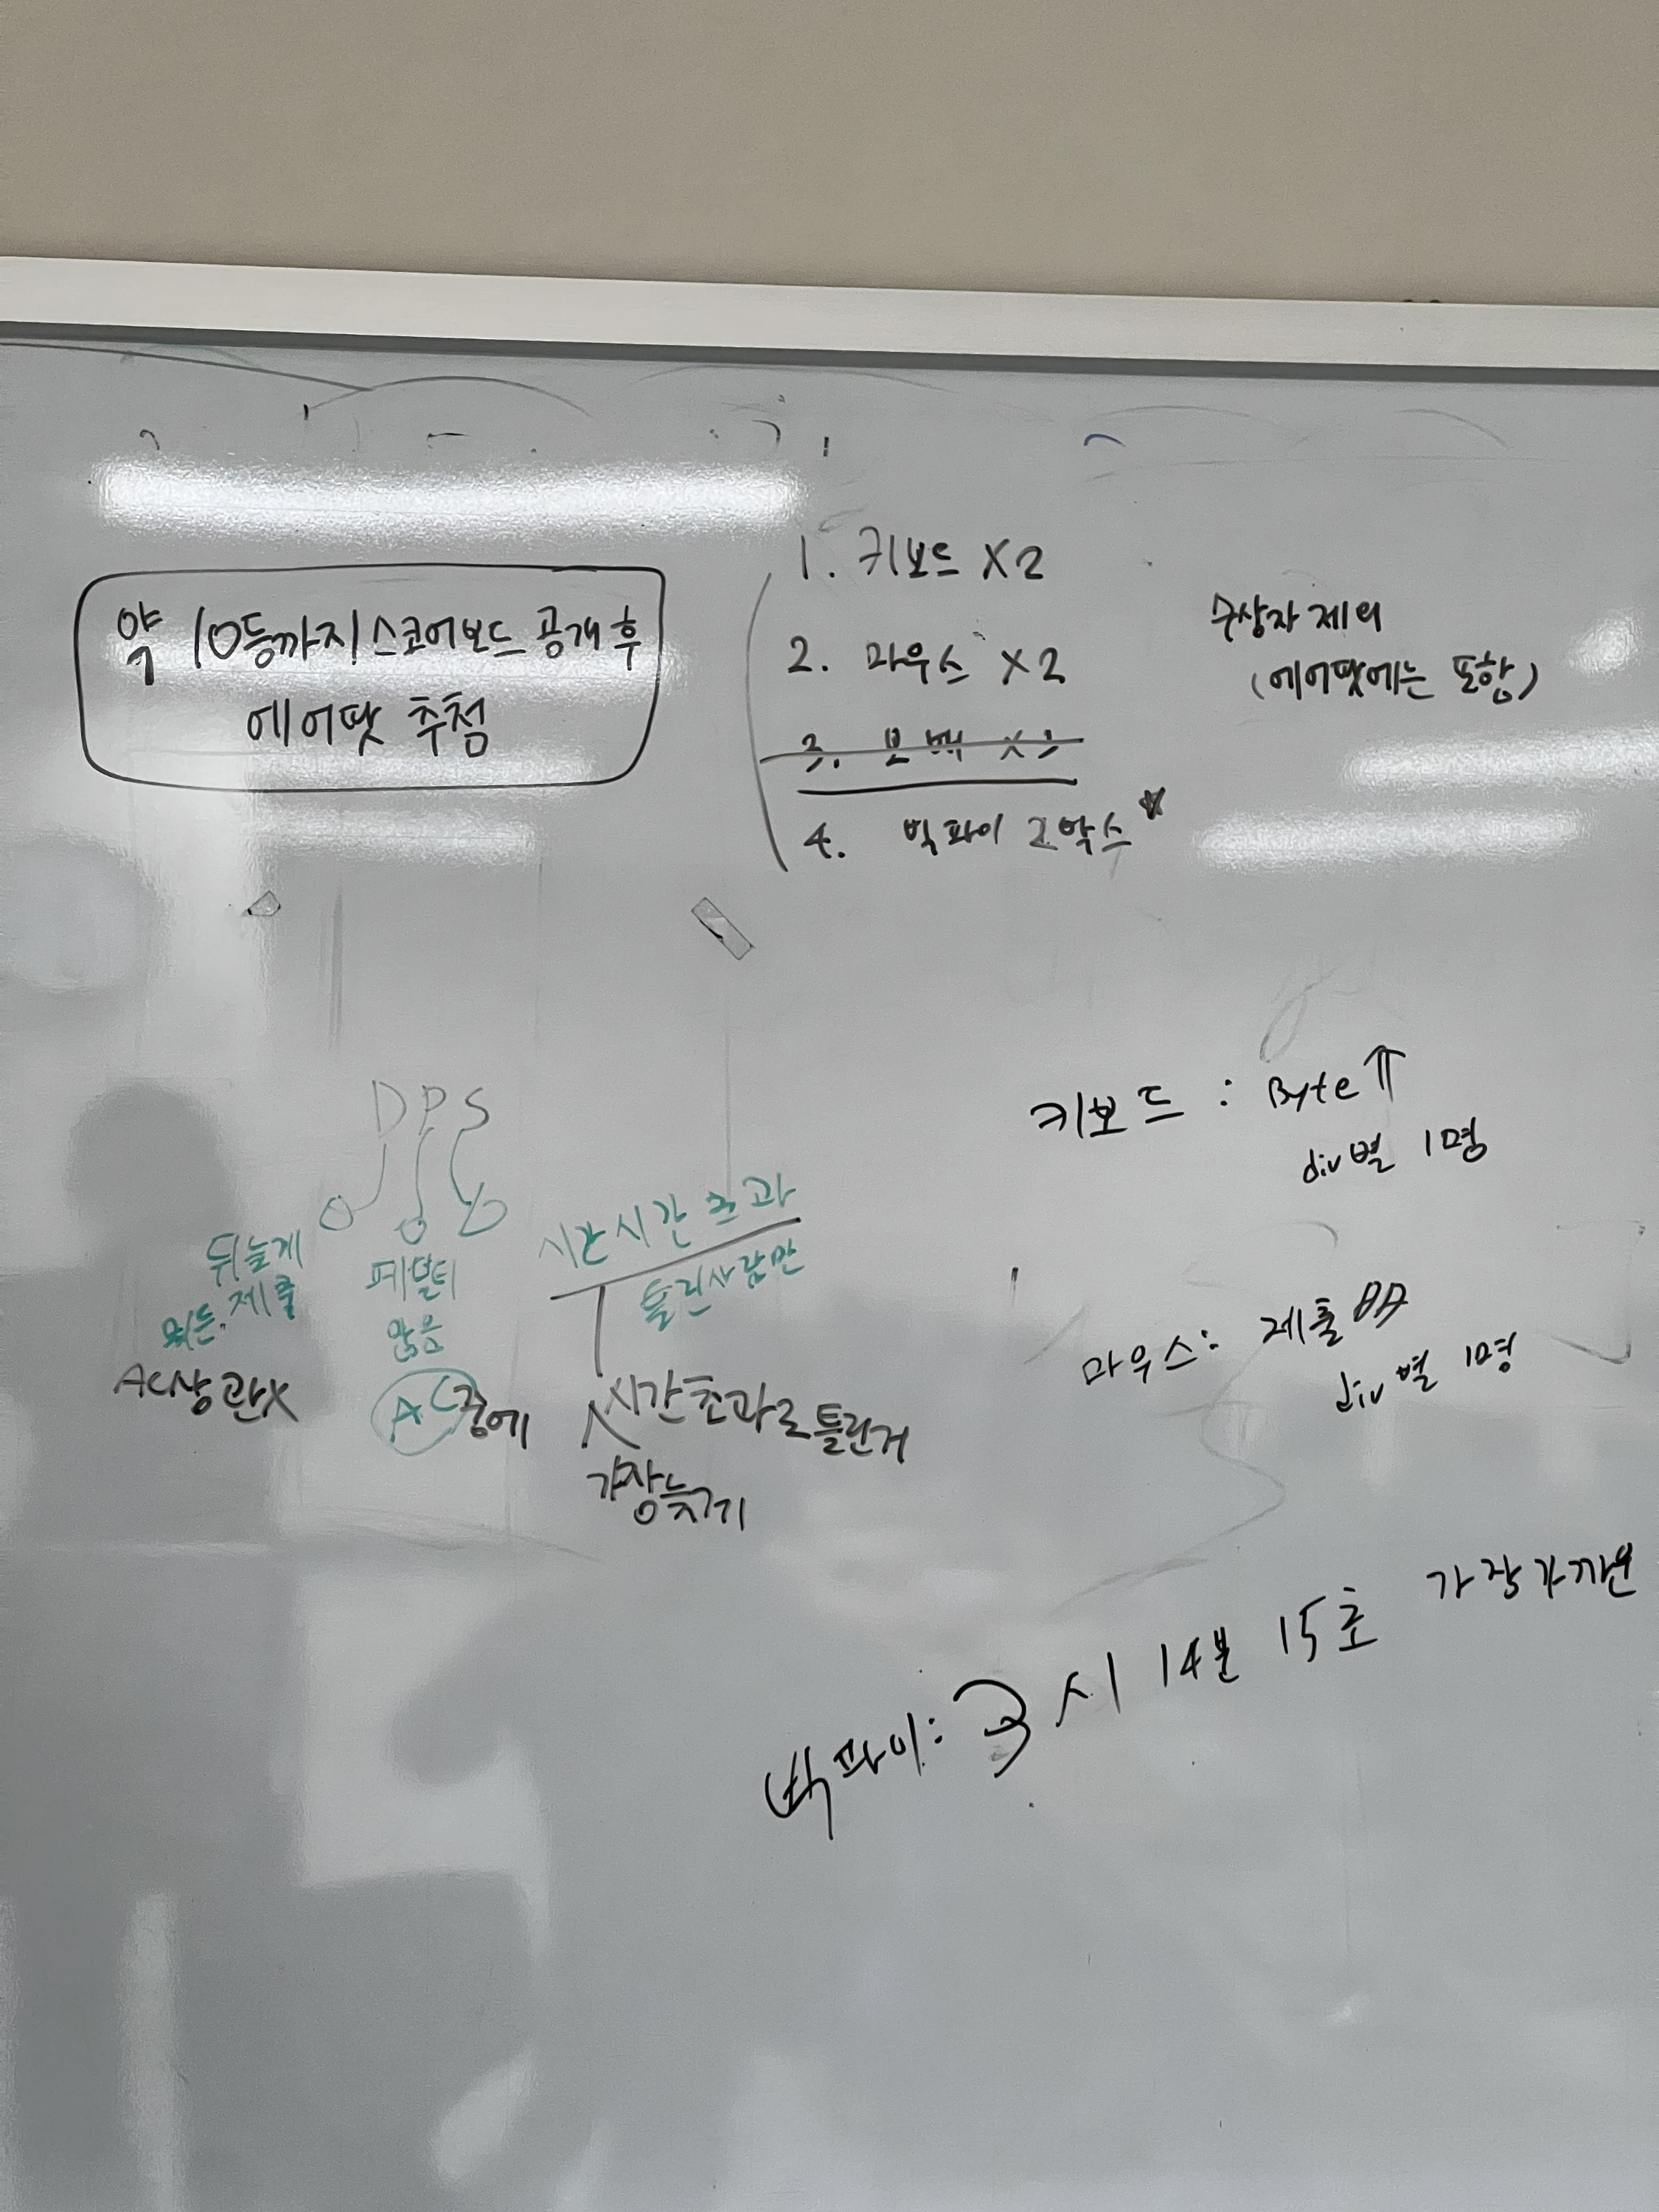 약 10등까지 스코어보드 공개 후
에어팟 추첨
1. 키보드 X2
2. 마우스 X2
3.
4. 빅파이 2박스
수상자 제외
(에어팟에는 포함)
DPS
뒤늦게
제출
AC상관X
페널티
많음
AC중에
시간시간초과
틀린사람만
시간초과로틀린거
가장늦거기
키보드 : Byte⇑
div별 1명
마우스: 제출
div별 1명
빅파이: 3시 14분 15초 가장가까운